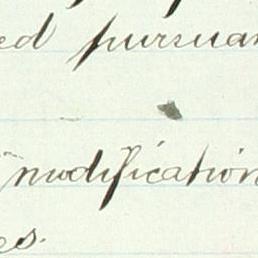 ed pursuan
modification
es.